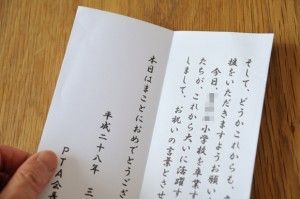 そして、どうかこれからも、
援をいただきますようお願い
今日、小学校を卒業す
たちが、これから大いに活躍す
しまして、お祝いの言葉とさせ
本日はまことにおめでとうござ
平成二十八年 三
PTA会長